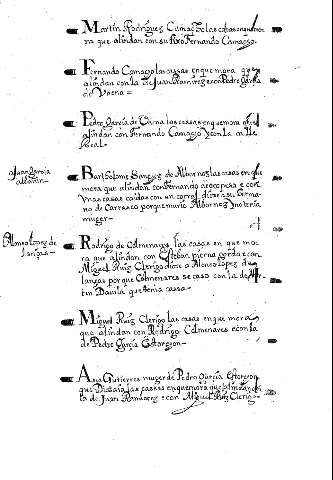 Martin Rodriguez Camacho las casas en que mo
ra que alindan con su hixo Fernando Camacho.
Fernando Camacho las casas en que mora que
alindan con la de Juan Ramirez e con Pedro Garcia
de Vaena =
Pedro Garcia de Vaena las casas en que mora que
alindan con Fernando Camacho e con la calle
Real -
Juan Garcia
albañir -
Bartolome Sanchez de Albornoz las casas en que
mora que alindan con Fernando
unas casas caidas con un corral dice a su herma
no de Carrasco porque murio Albornoz y no tenia
muger -
Alonso Lopez de
lanças -
Rodrigo de Colmenares las casas en que mo
ra que alindan con Esteban pierna gorda e con
Miguel Ruiz Clerigo diose a Alonso Lopez de
lanças porque Colmenares se caso con la de
tin Davila que tenia cassa -
Miguel Ruiz Clerigo las casas en que mora
que alindan con Rodrigo Colmenares e con la
de Pedro Garcia
Ana Gutierres muger de Pedro Garcia
que Dios aia las casas en que mora que alindan con
la de Juan Ramirez e con Miguel Ruiz Clerigo -